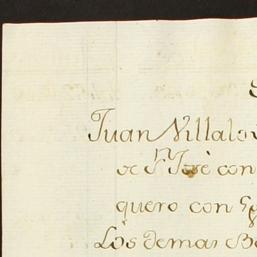 Juan Villalo
de Sn. Josè con
quero con
Los demas Be